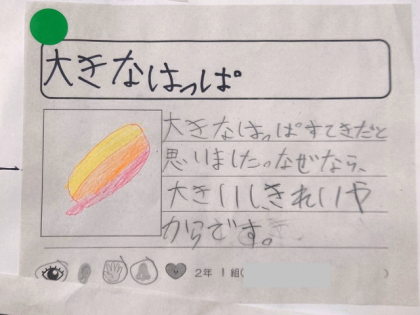 大きなはっぱ
大きなはっぱすてきだと
思いました。なぜなら、
大きいし、きれいや
からです。
2年 1組(
)